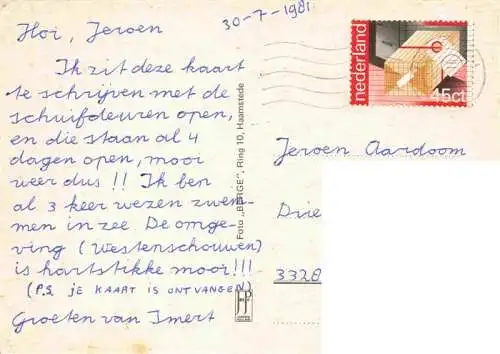 30-7-1981
Hoi, Jeroen
Ik zit deze kaart
te schrijven met de
schuifdeuren open,
en die staan al 4
dagen open, mooi
weer dus !! Ik ben
al 3 keer wezen zwem-
men in zee. De omge-
ving (Westenschouwen)
is hartstikke mooi!!!
(P.S. je KAART IS ONTVANGEN)
Groeten van Imert
Foto „BERGE", Ring 10, Haamstede
nederland
45ct
Jeroen Aardoom
Drie
3328